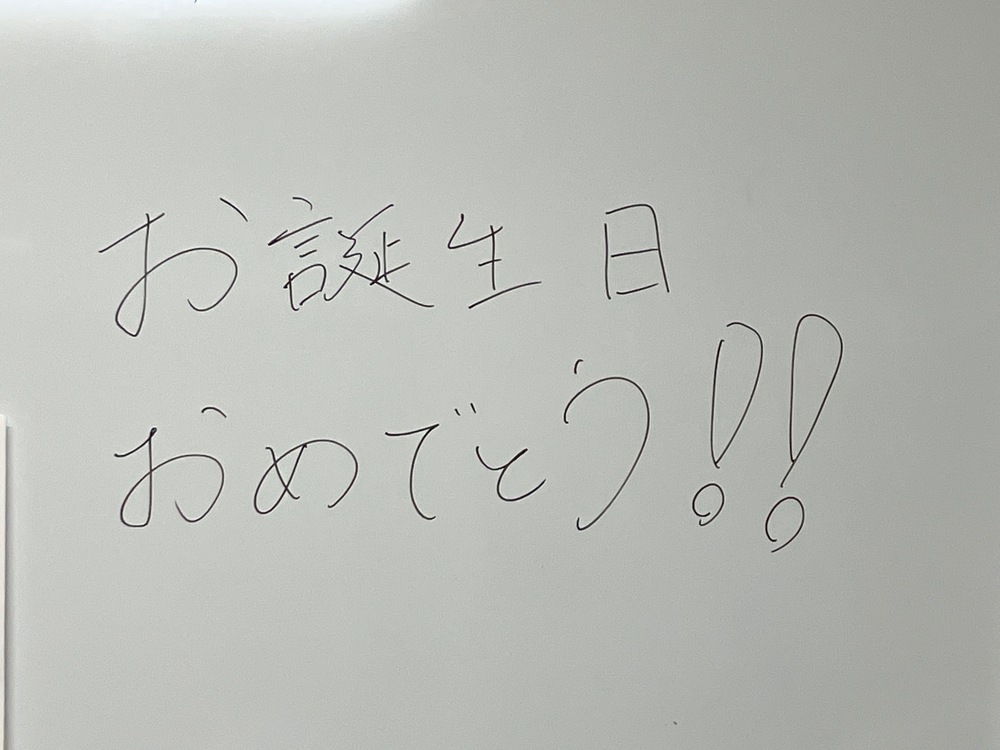 お誕生日
おめでとう!!